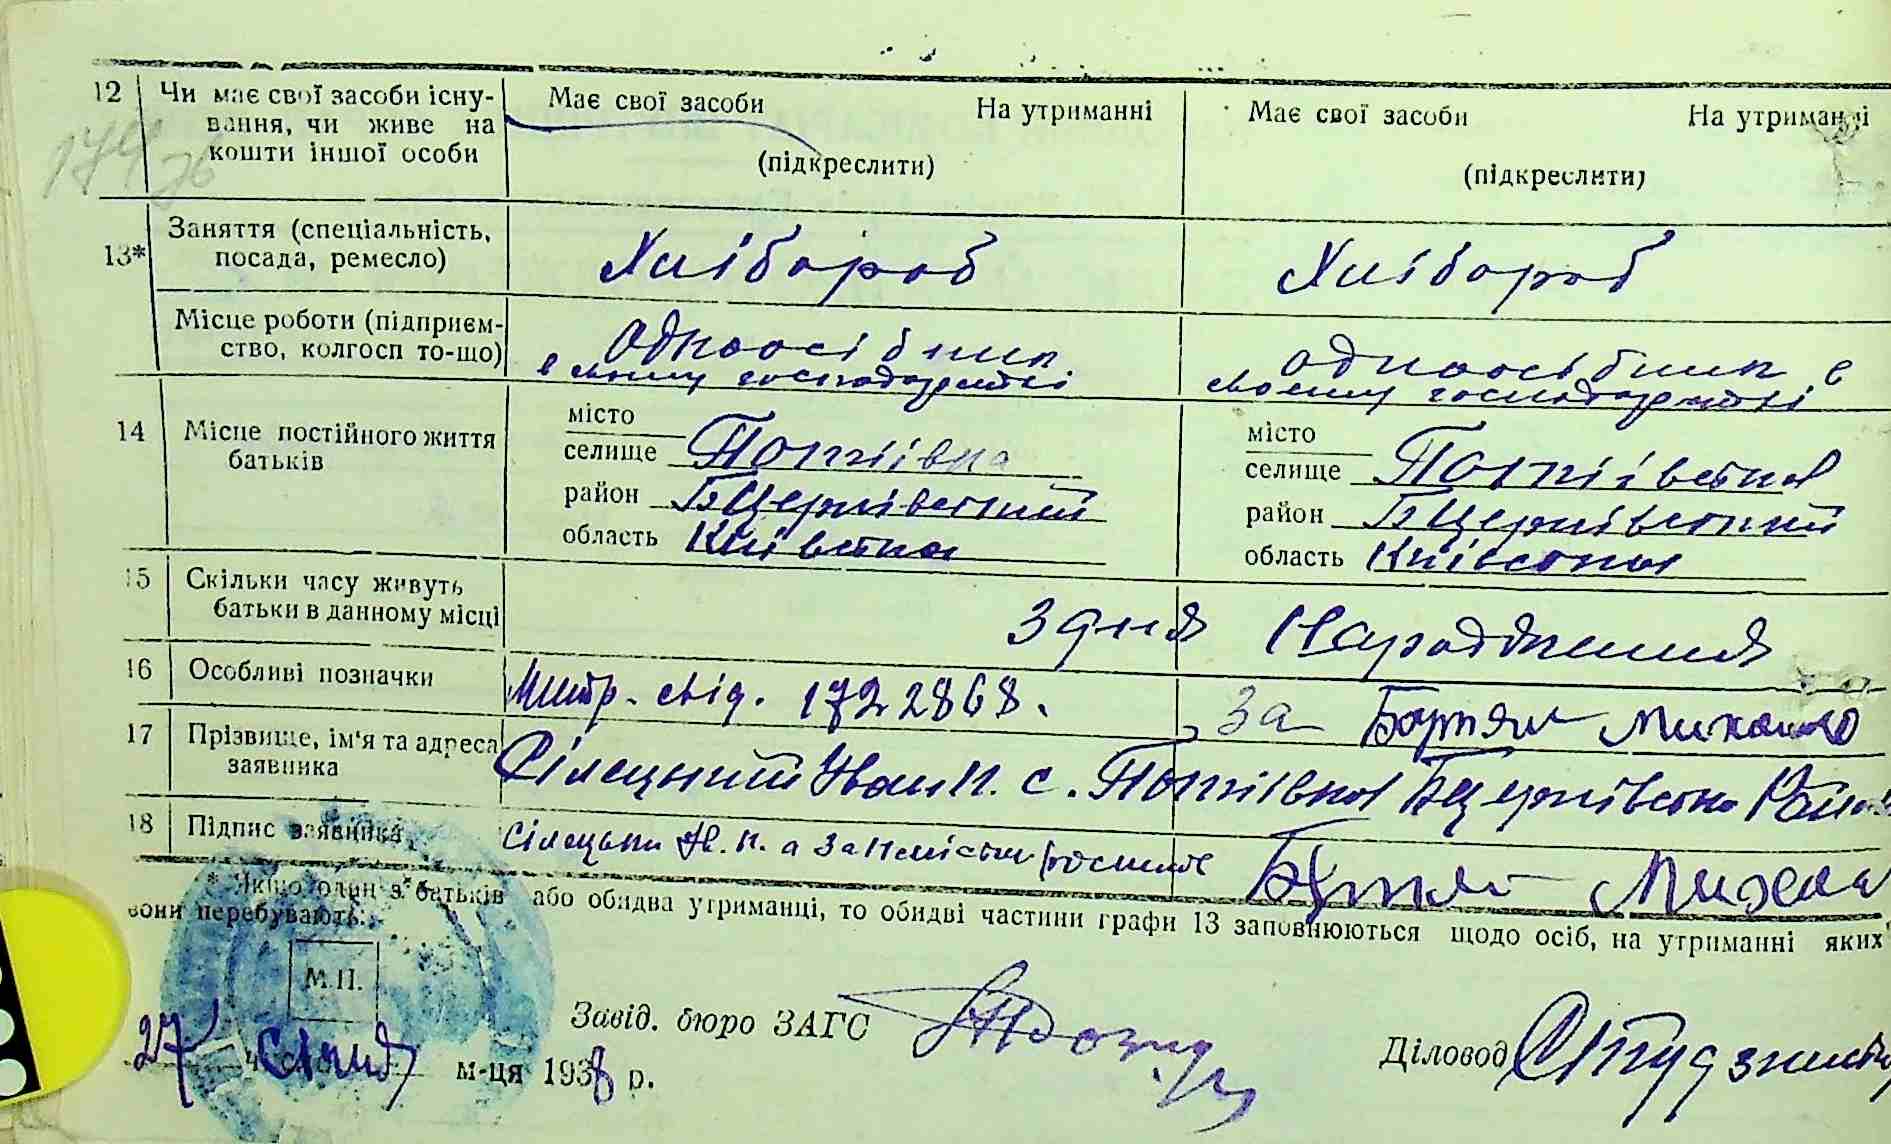 12 Чи має свої засоби існу- Має свої засоби На утриманні Має свої засоби На утриманні
вання, чи живе на
кошти іншої особи (підкреслити) (підкреслити)
174
13* Заняття (спеціальність, Хлібороб Хлібороб
посада, ремесло)
Місце роботи (підприєм- одноосібник одноосібник в
ство, колгосп то-що) в своєму господарстві своєму господарстві
14 Місце постійного життя місто місто
батьків селище Потіївка селище Потіївка
район БЦерківський район БЦерківський
область Київська область Київська
15 Скільки часу живуть з дня Народження
батьки в данному місці
16 Особливі позначки Метр. свід. 1722868. За Михайло
17 Прізвище, ім'я та адреса Сілецький Іван П. с. Потіївка БЦерківсько Рай
заявника
18 Підпис заявника Сілецький П. а за
* Якщо один з батьків або обидва утриманці, то обидві частини графи 13 заповнюються щодо осіб, на утриманні яких
вони перебувають.
М.П.
Завід. бюро ЗАГС
27 м-ця 1938 р. Діловод